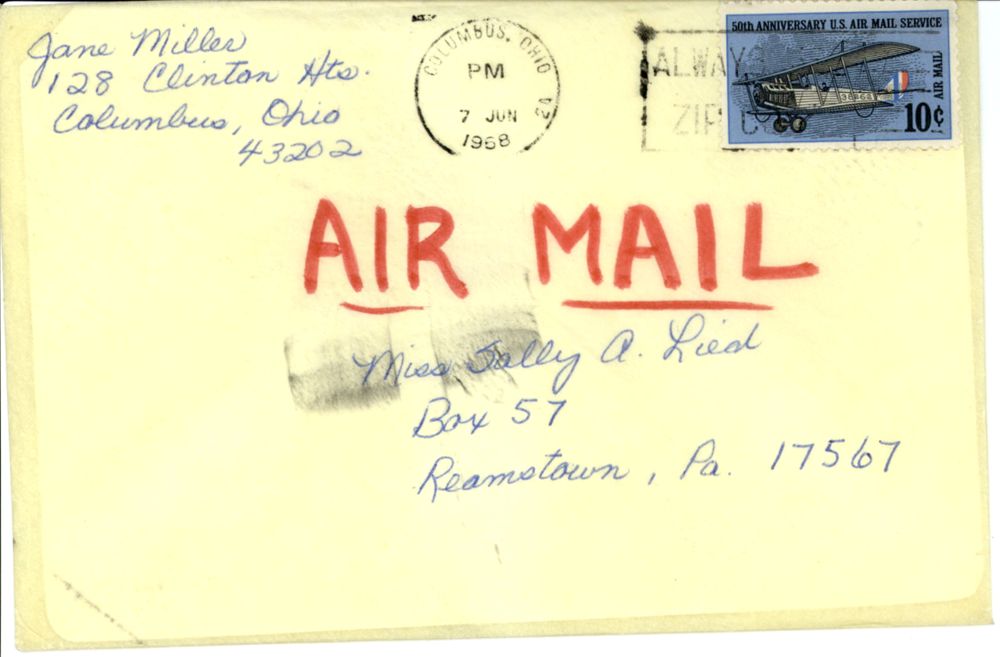 Jane Miller
128 Clinton Hts.
Columbus, Ohio
43202
COLUMBUS, OHIO
PM
7 JUN
1968
50th ANNIVERSARY U.S. AIR MAIL SERVICE
AIR MAIL
10¢
ALWAYS
ZIP C
AIR MAIL
Miss Sally A. Lied
Box 57
Reamstown, Pa. 17567